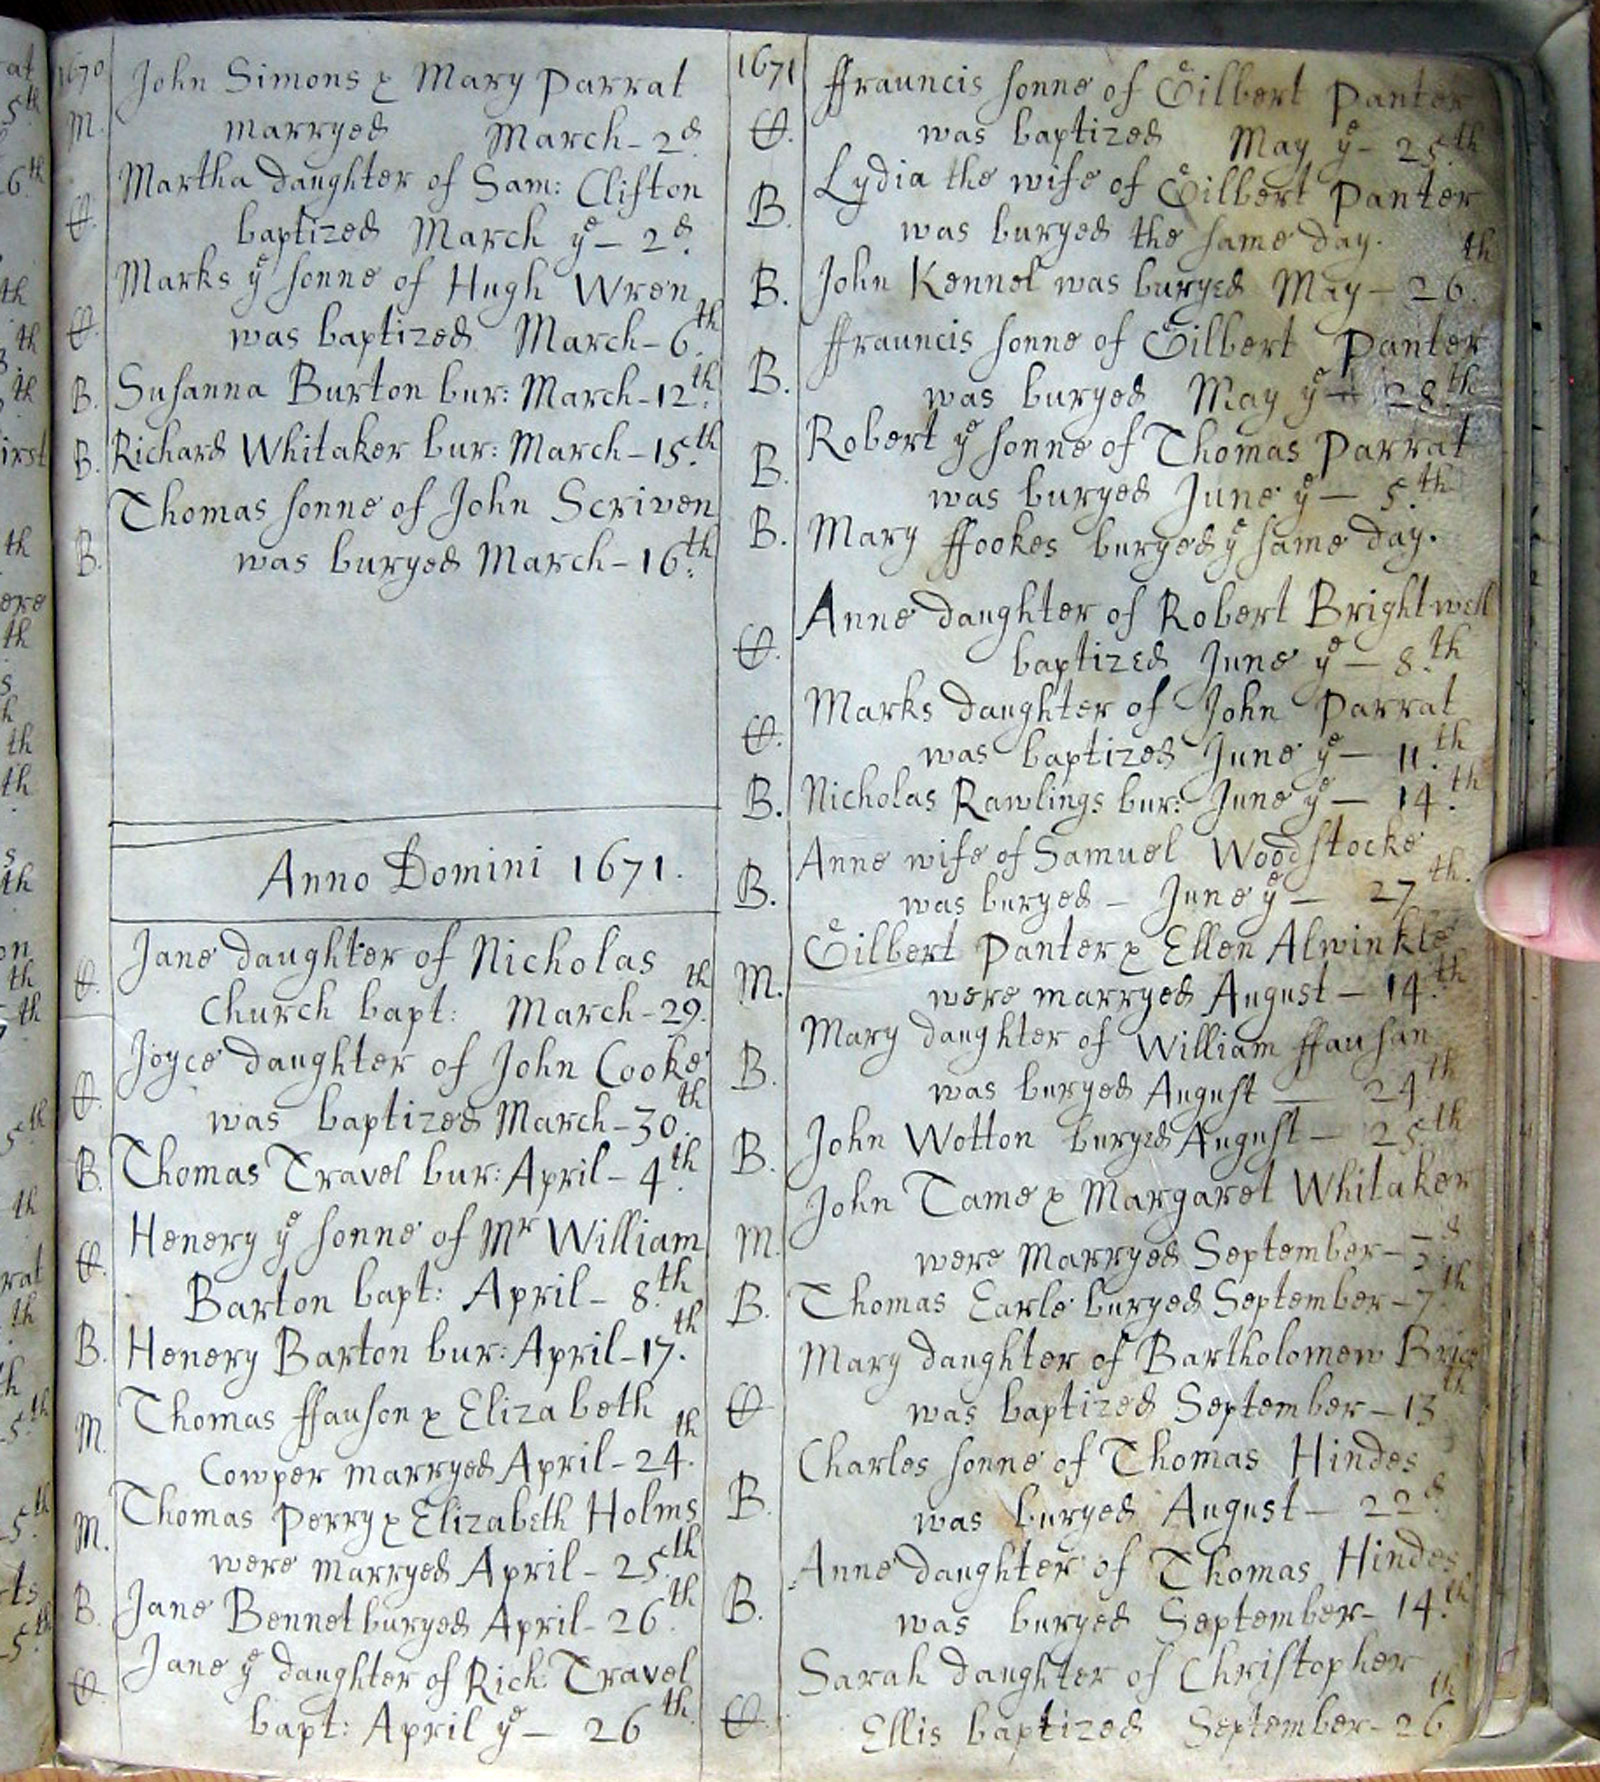 1670
John Simons & Mary Parrat
M. marryed March - 2d
Martha daughter of Sam: Clifton
C. baptized March ye - 2d.
Marks ye sonne of Hugh Wren
C. was baptized March - 6th.
B. Susanna Burton bur: March - 12th.
B. Richard Whitaker bur: March - 15th.
Thomas sonne of John Scriven
B. was buryed March - 16th.
Anno Domini 1671.
Jane daughter of Nicholas
C. Church bapt: March - 29th.
Joyce daughter of John Cooke
C. was baptized March - 30th.
B. Thomas Travel bur: April - 4th.
Henery ye sonne of Mr William
C. Barton bapt: April - 8th.
B. Henery Barton bur: April - 17th.
Thomas ffauson & Elizabeth
M. Cowper marryed April - 24th.
Thomas Perry & Elizabeth Holms
M. were marryed April - 25th.
B. Jane Bennet buryed April - 26th.
Jane ye daughter of Rich: Travel
C. bapt: April ye - 26th.
1671
ffrauncis sonne of Gilbert Panter
C. was baptized May ye - 25th
Lydia the wife of Gilbert Panter
B. was buryed the same day.
B. John Kennel was buryed May - 26th.
ffrauncis sonne of Gilbert Panter
B. was buryed May ye - 28th.
Robert ye sonne of Thomas Parrat
B. was buryed June ye - 5th.
B. Mary ffookes buryed ye same day.
Anne daughter of Robert Brightwell
C. baptized June ye - 8th.
Marks daughter of John Parrat
C. was baptized June ye - 11th.
B. Nicholas Rawlings bur: June ye - 14th.
Anne wife of Samuel Woodstocke
B. was buryed - June ye - 27th.
Gilbert Panter & Ellen Alwinkle
M. were marryed August - 14th.
Mary daughter of William ffausan
B. was buryed August - 24th.
B. John Wotton buryed August - 25th.
John Tame & Margaret Whitaker
M. were Marryed September - 3d.
B. Thomas Earle buryed September - 7th
Mary daughter of Bartholomew
C. was baptized September - 13th
Charles sonne of Thomas Hindes
B. was buryed August - 22d.
Anne daughter of Thomas Hindes
B. was buryed September - 14th.
Sarah daughter of Christopher
C. Ellis baptized September - 26th